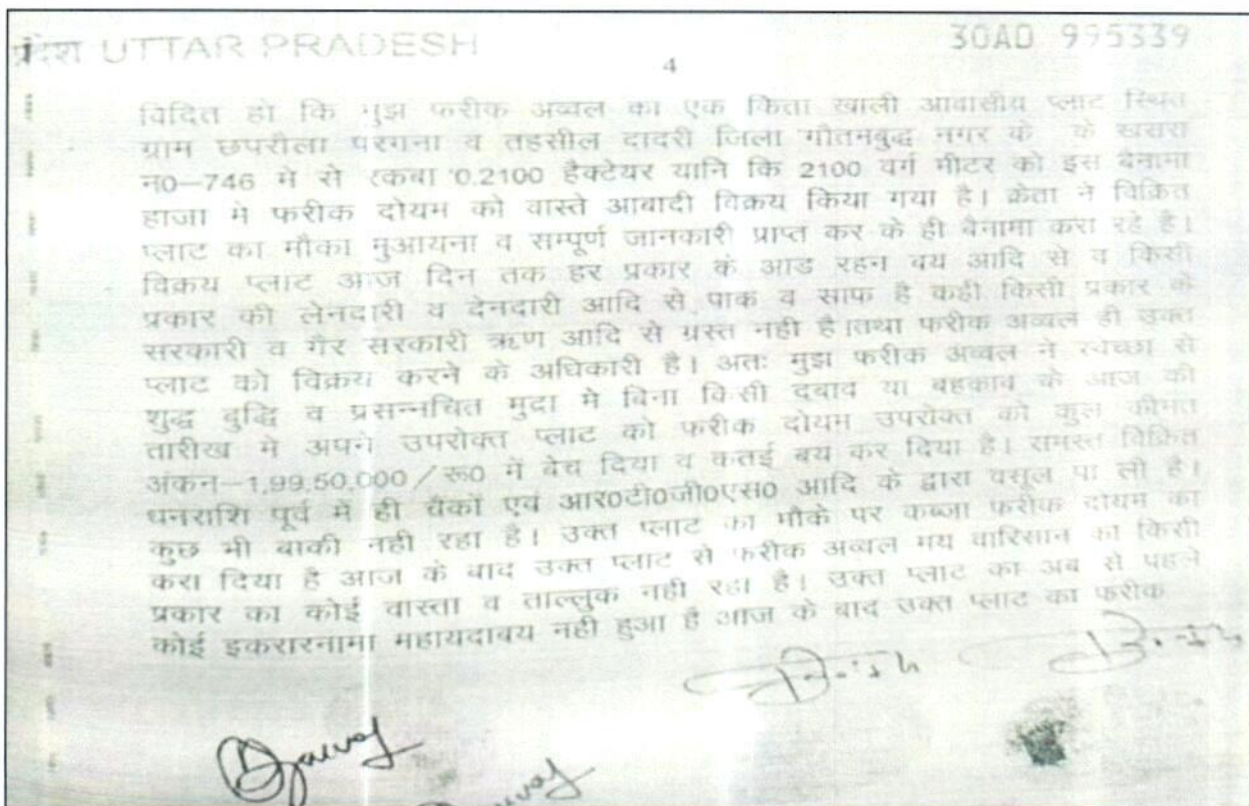 प्रदेश UTTAR PRADESH
30AD 995339
4
विदित हो कि मुझ फरीक अव्वल का एक किता खाली आवासीय प्लाट स्थित
ग्राम छपरौला परगना व तहसील दादरी जिला गौतमबुद्ध नगर के के खसरा
न0–746 मे से रकबा 0.2100 हैक्टेयर यानि कि 2100 वर्ग मीटर को इस बैनामा
हाजा मे फरीक दोयम को वास्ते आबादी विक्रय किया गया है। क्रेता ने विक्रित
प्लाट का मौका मुआयना व सम्पूर्ण जानकारी प्राप्त कर के ही बैनामा करा रहे है।
विक्रय प्लाट आज दिन तक हर प्रकार के आड रहन बय आदि से व किसी
प्रकार की लेनदारी व देनदारी आदि से पाक व साफ है कही किसी प्रकार के
सरकारी व गैर सरकारी ऋण आदि से ग्रस्त नही है।तथा फरीक अव्वल ही उक्त
प्लाट को विक्रय करने के अधिकारी है। अतः मुझ फरीक अव्वल ने स्वेच्छा से
शुद्ध बुद्धि व प्रसन्नचित मुद्रा मे बिना किसी दबाव या बहकाव के आज की
तारीख मे अपने उपरोक्त प्लाट को फरीक दोयम उपरोक्त को कुल कीमत
अंकन–1,99,50,000/रू0 में बेच दिया व कतई बय कर दिया है। समस्त विक्रित
धनराशि पूर्व में ही चैकों एवं आर0टी0जी0एस0 आदि के द्वारा वसूल पा ली है।
कुछ भी बाकी नही रहा है। उक्त प्लाट का मौके पर कब्जा फरीक दोयम का
करा दिया है आज के बाद उक्त प्लाट से फरीक अव्वल मय वारिसान का किसी
प्रकार का कोई वास्ता व ताल्लुक नही रहा है। उक्त प्लाट का अब से पहले
कोई इकरारनामा महायदाबय नही हुआ है आज के बाद उक्त प्लाट का फरीक